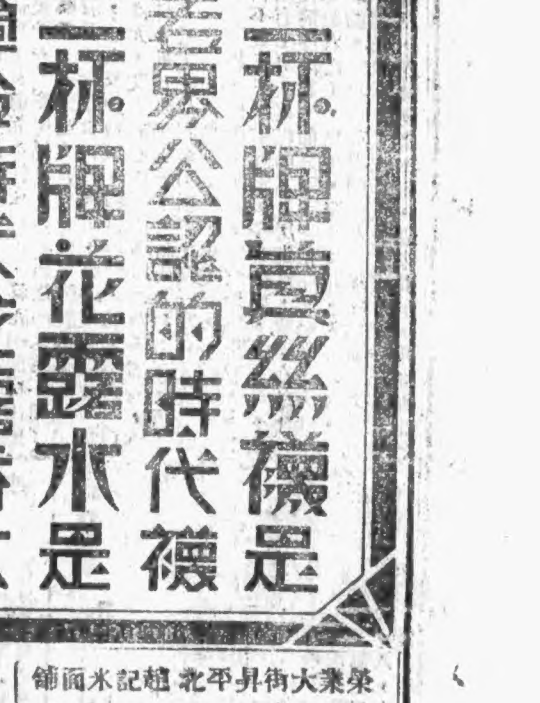 一杯牌真絲襪是
界公認的時代襪
一杯牌花露水是
榮業大街昇平北 趙記米面舖